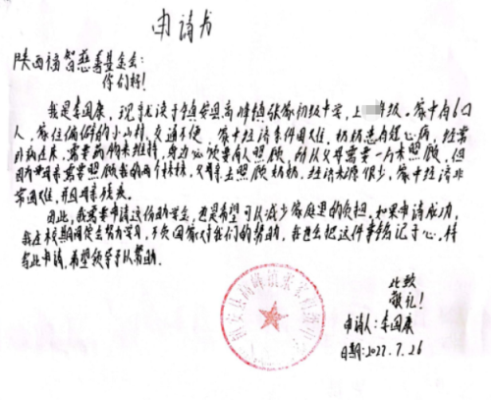 申请书
陕西福智慈善基金会:
你们好!
我是李国康,现就读于镇安县高峰镇张家初级中学,上 年级。家中有6口
人,家住偏僻的小山村,交通不便,家中经济条件困难,奶奶患有冠心病,经常
需要药物来维持,身边必须要有人照顾,所以父母需要一方来照顾,但
因为 需要照顾 的两个妹妹,又得去照顾奶奶,经济来源很少,家中经济非
常困难,并且
因此,我需要申请这份助学金,也是希望可以减少家庭里的负担,如果申请成功,
我在校期间会努力学习,不负国家对我们的帮助,我也会把这件事铭记于心,特
此申请,希望领导予以帮助。
此致
敬礼!
申请人:李国康
日期:2022.7.26